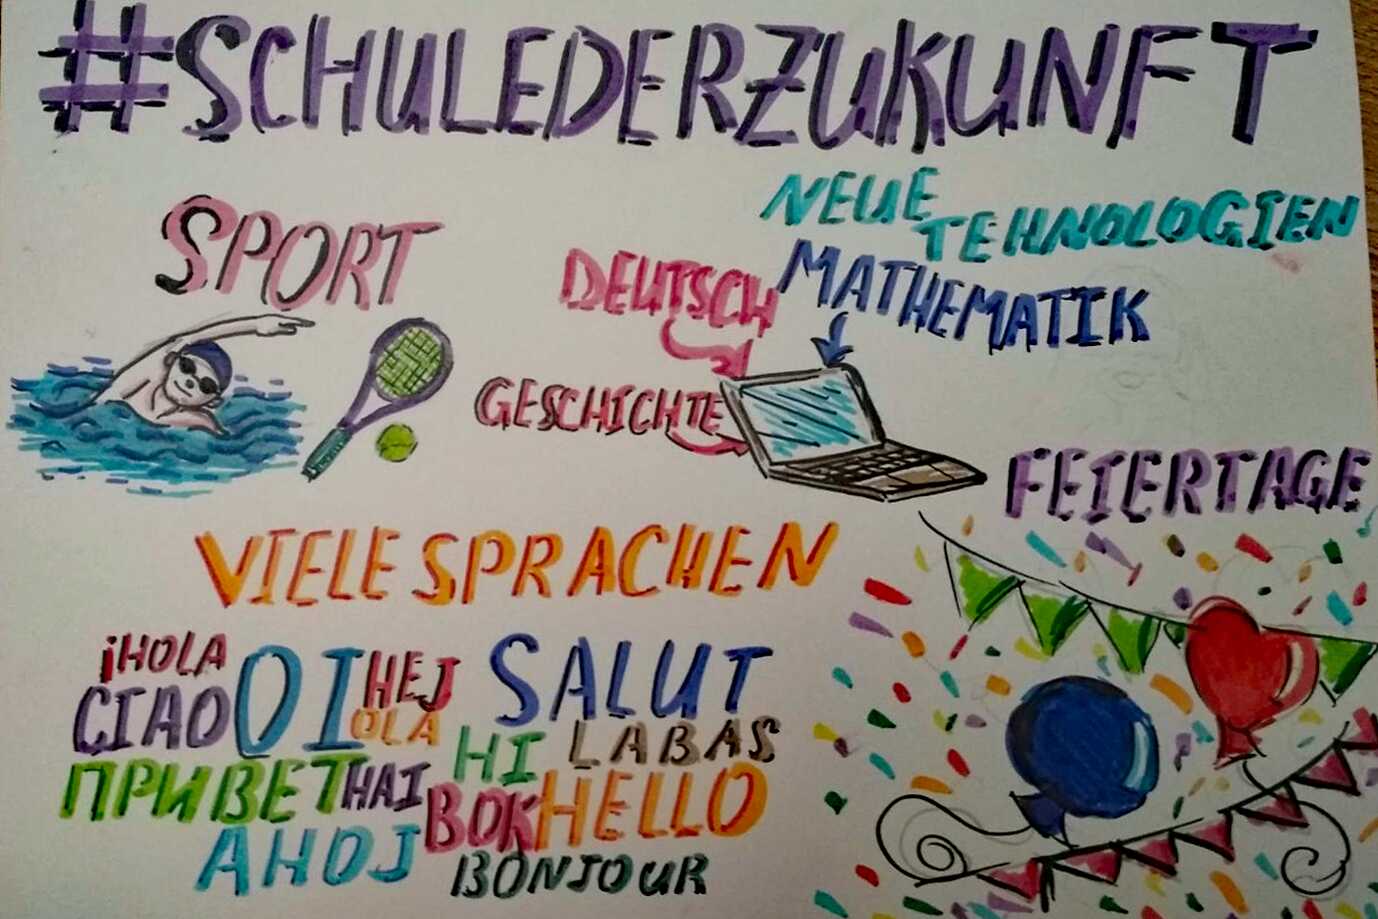 #SCHULEDERZUKUNFT
SPORT
NEUE
TEHNOLOGIEN
DEUTSCH
MATHEMATIK
GESCHICHTE
FEIERTAGE
VIELE SPRACHEN
¡HOLA
CIAO
OI
HEJ
OLA
SALUT
HI
LABAS
ПРИВЕТ
HAI
BOK
HELLO
AHOJ
BONJOUR